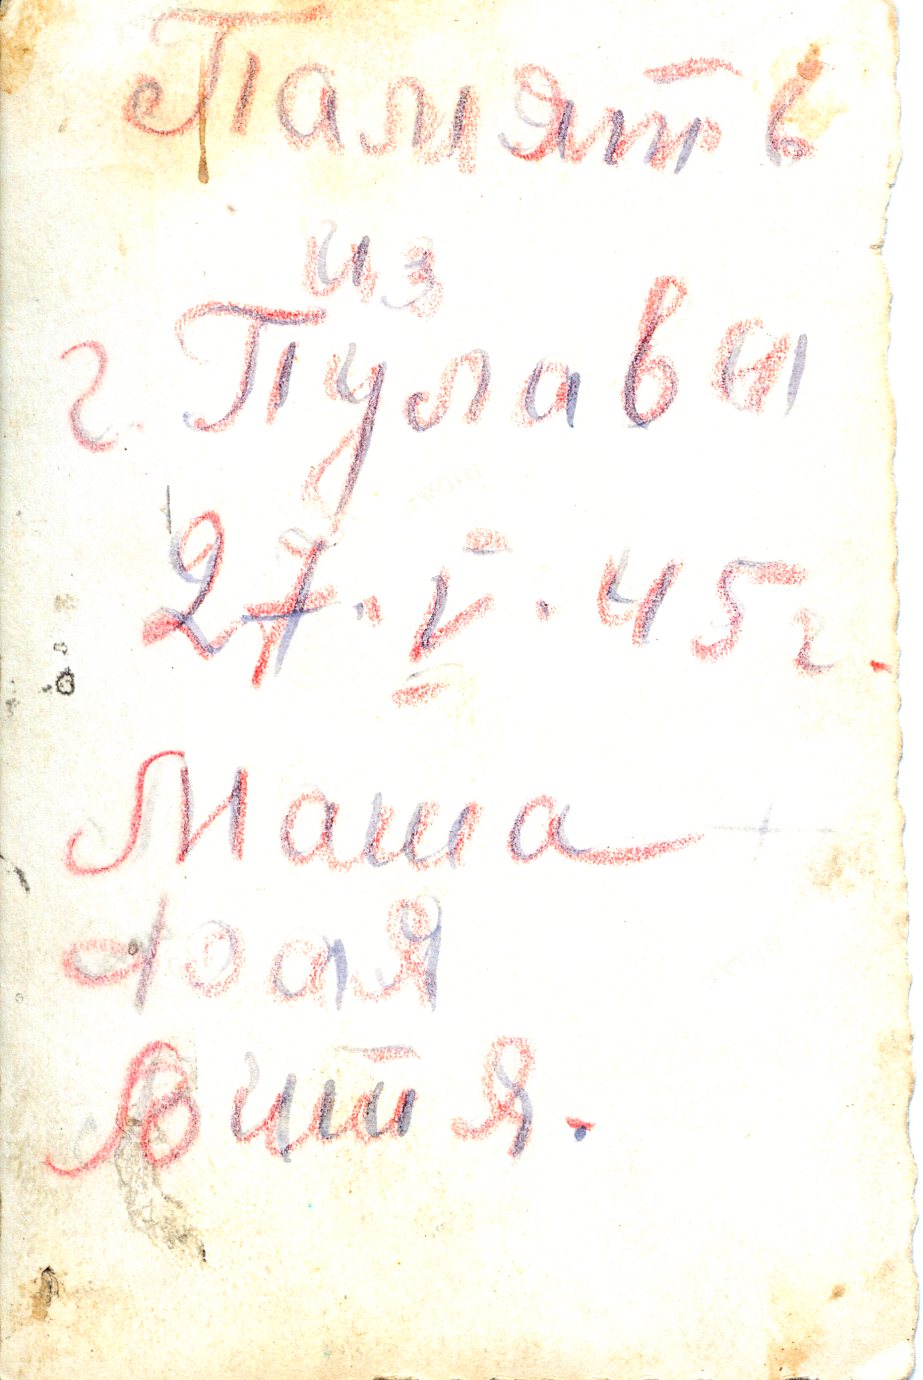 Память
из
г. Пулавы
27.V.45г.
Маша
Фая
Витя.